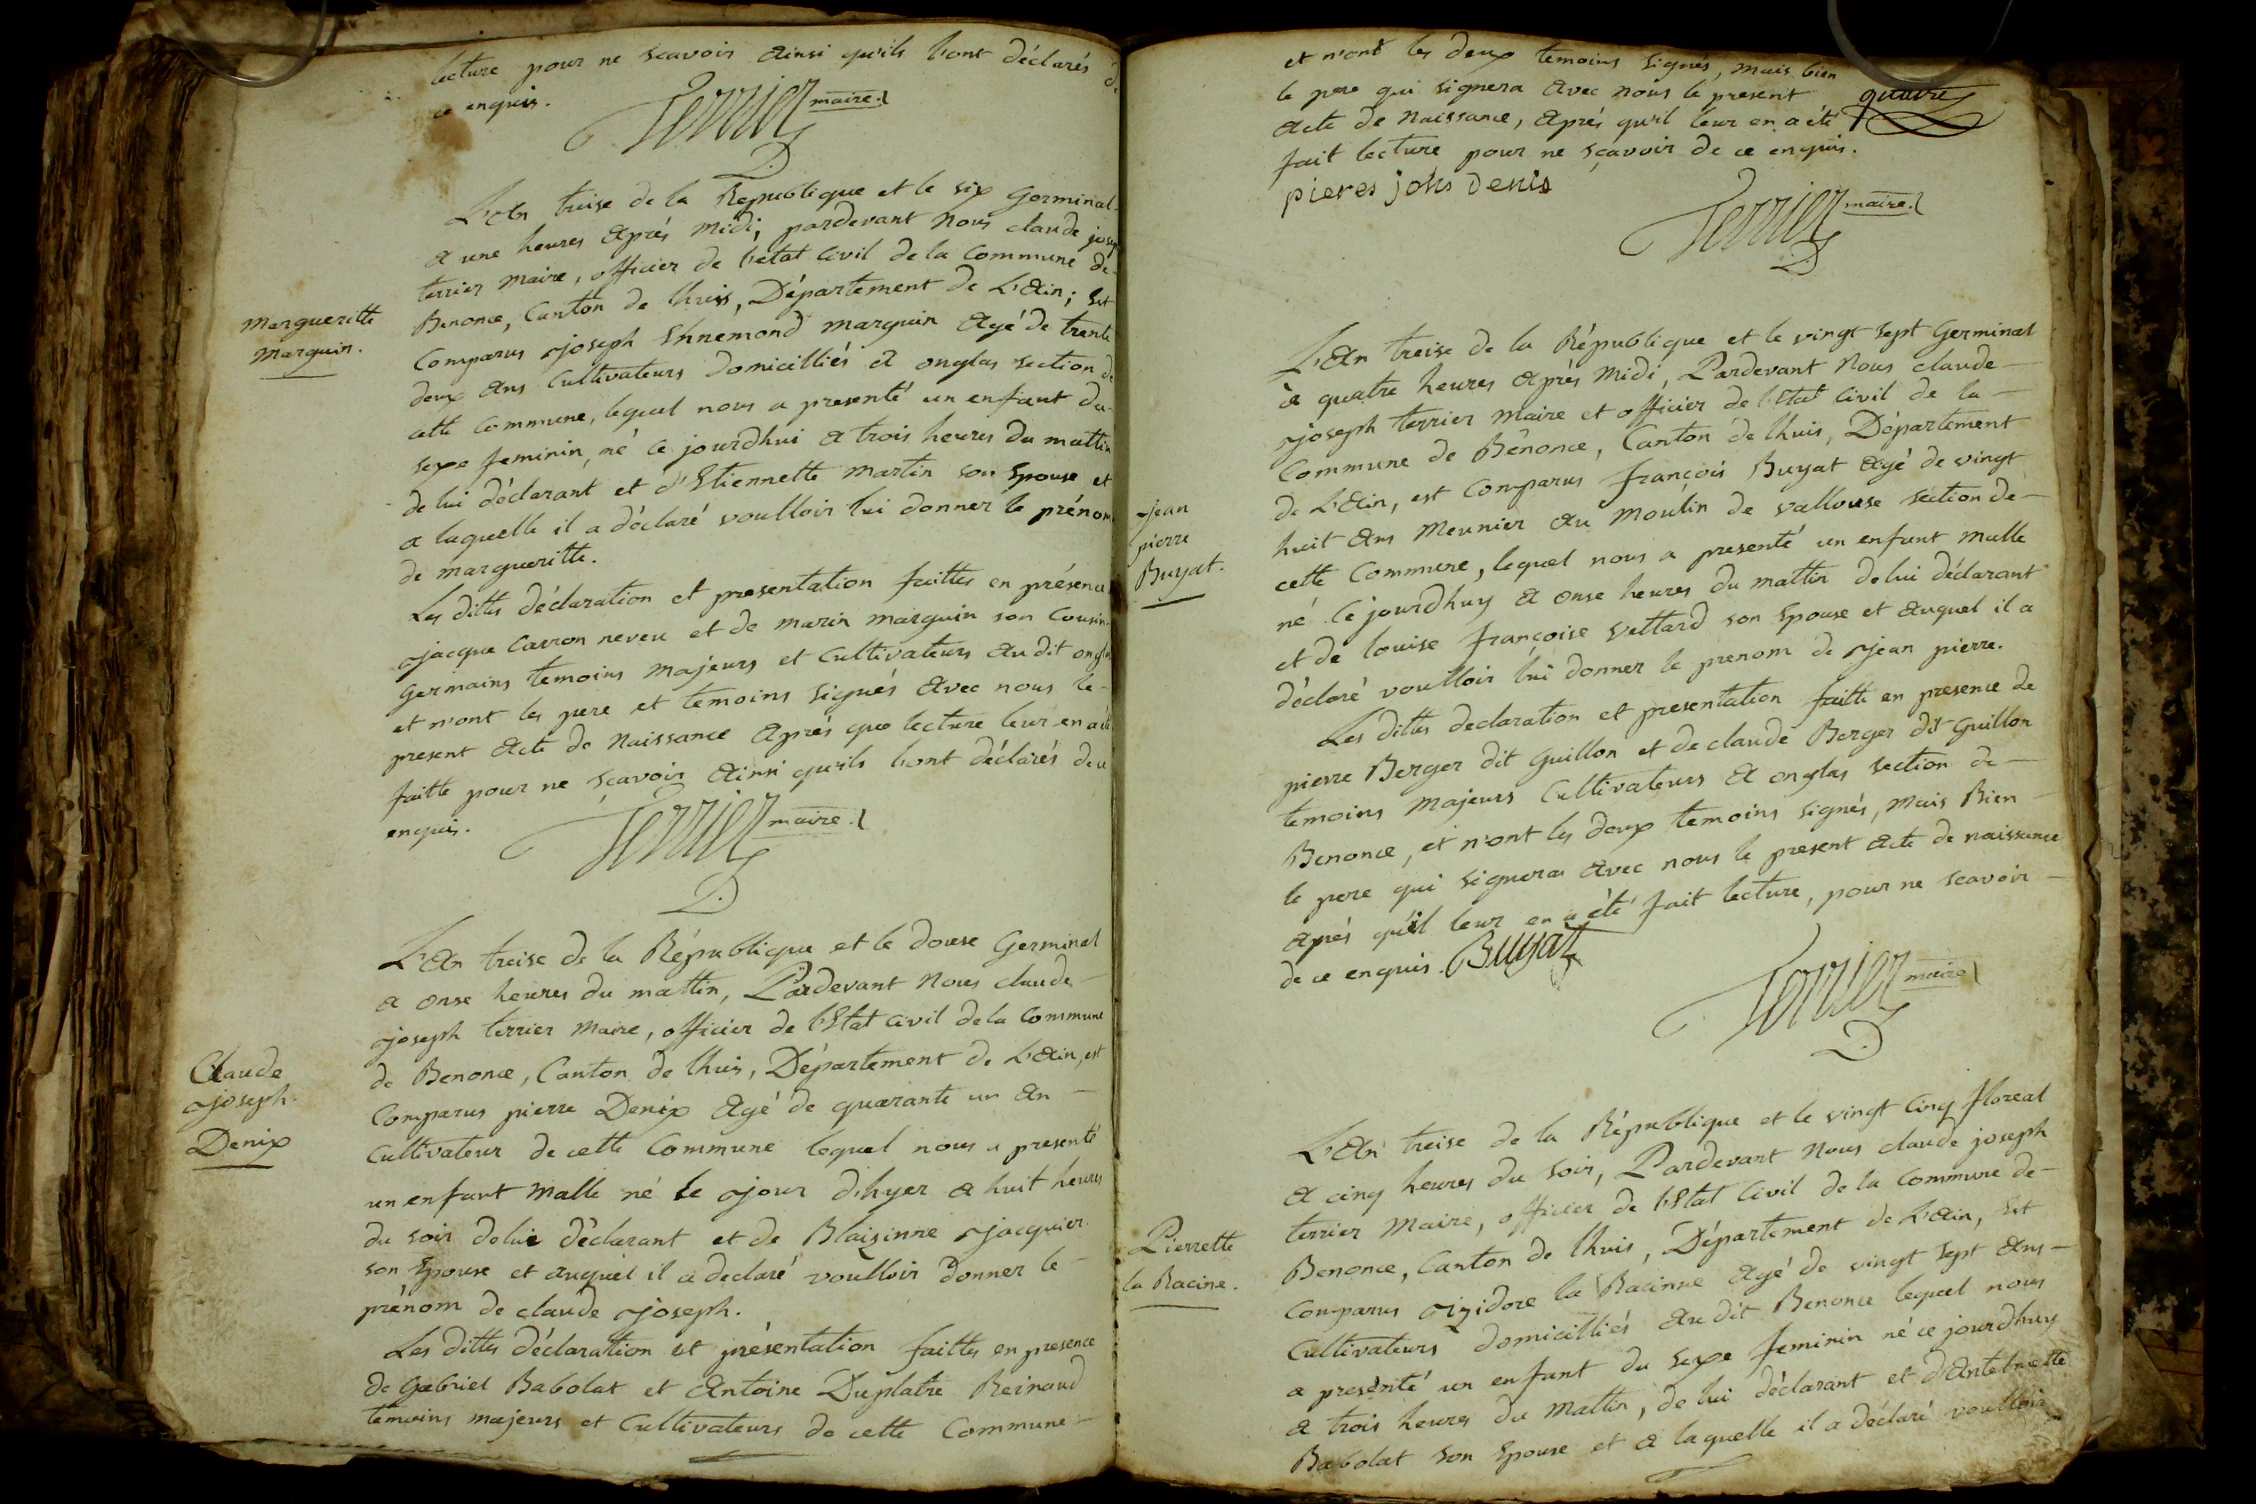 lecture pour ne scavoir Ainsi qu'ils l'ont déclarés d
ce enquis.
Terrier maire.
L'An treise de la Republique et le six Germinal
A une heures Aprés midi, pardevant nous claude josep
terrier maire, officier de l'etat Civil de la Commune de
Benonce, Canton de lhuis, Département de L'Ain; Est
Comparus joseph Ennemond marguin Agé de trente
deux Ans Cultivateurs Domicilliés A onglas section de
cette Commune, lequel nous a presenté un enfant du
sexe feminin, né Ce jourdhui A trois heures du mattin
de lui déclarant et d'Etiennette martin son Epouse et
a laquelle il a déclaré voulloir lui donner le prénom
de margueritte.
Margueritte
Marguin.
Les dittes déclaration et presentation faittes en présence
jacque Carron neveu et de marin marguin son Cousin
Germains temoins majeurs et Cultivateurs Au dit onglas
et n'ont les pere et temoins signés Avec nous le
present Acte de Naissance Aprés que lecture leur en a été
faitte pour ne scavoir Ainsi qu'ils l'ont déclarés de ce
enquis.
Terrier maire.
L'An treise de la République et le douse Germinal
A onse heures du mattin, Pardevant Nous claude
joseph terrier Maire, officier de l'Etat Civil de la Commune
de Benonce, Canton de lhuis, Département de L'Ain, est
Comparus pierre Denix Agé de quarante un An
Cultivateur de cette Commune lequel nous a presenté
un enfant Malle né le jour d'hyer A huit heures
du soir de lui déclarant et de Blaisinne jacquier
son Epouse et Auquel il a declaré voulloir donner le
prénom de claude joseph.
Claude
joseph
Denix
Les dittes déclaration et présentation faittes en presence
de Gabriel Babolat et Antoine Duplatre Reinaud
temoins majeurs et Cultivateurs de cette Commune
et n'ont les deux temoins signés, mais bien
le pere qui signera Avec nous le present
Acte de Naissance, Aprés qu'il leur en a été
fait lecture pour ne sçavoir de ce enquis.
pieres johs Denis
Terrier maire.
L'An treise de la République et le vingt sept Germinal
à quatre heures Après Midi, Pardevant Nous claude
joseph terrier Maire et officier de l'Etat Civil de la
Commune de Bénonce, Canton de lhuis, Département
de L'Ain, est Comparus françois Buyat Agé de vingt
huit Ans Meunier Au Moulin de vallouse section de
cette Commune, lequel nous a presenté un enfant malle
né Ce jourdhuy A onse heures du mattin de lui déclarant
et de louise françoise Vettard son Epouse et Auquel il a
déclaré voulloir lui donner le prenom de jean pierre.
jean
pierre
Buyat.
Les dittes declaration et presentation faitte en presence de
pierre Berger dit Guillon et de claude Berger dit Guillon
temoins Majeurs Cultivateurs A onglas section de
Benonce, et n'ont les deux temoins signés, Mais Bien
le pere qui signera Avec nous le present Acte de naissance
Aprés qu'il leur en a été fait lecture, pour ne scavoir
de ce enquis. Buyat
Terrier maire
L'An treise de la République et le vingt Cinq floreal
A cinq heures du soir, Pardevant Nous claude joseph
terrier Maire, officier de l'Etat Civil de la Commune de
Benonce, Canton de lhuis, Département de L'Ain, Est
Comparus izidore la Racinne Agé de vingt sept Ans
Cultivateurs domicilliés Au dit Benonce lequel nous
a presenté un enfant du sexe feminin né ce jourdhuy
A trois heures du Mattin, de lui déclarant et d'Antelmette
Babolat son Epouse et A laquelle il a déclaré voulloir
Pierrette
la Racine.